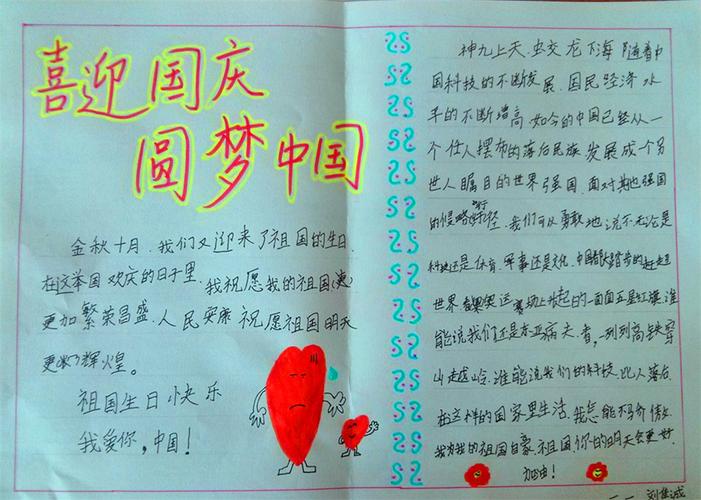 喜迎国庆
圆梦中国
金秋十月,我们又迎来了祖国的生日.
在这举国欢庆的日子里,我祝愿我的祖国
更加繁荣昌盛.人民安康祝愿祖国明天
更加辉煌。
祖国生日快乐
我爱你,中国!
神九上天.蛟龙下海随着中
国科技的不断发展.国民经济水
平的不断增高.如今的中国已经从一
个任人摆布的落后民族发展成一个另
世人瞩目的世界强国.面对其他强国
的侵略行径.我们可以勇敢地说不无论是
科技还是体育.军事还是文化.中国都大踏步的赶超
世界.奥运赛场上升起的一面面五星红旗.谁
能说我们还是东亚病夫.看,一列列高铁穿
山越岭.谁能说我们的科技比人落后.
在这样的国家里生活,我怎能不骄傲
我为我的祖国自豪.祖国你的明天会更好.
加油!